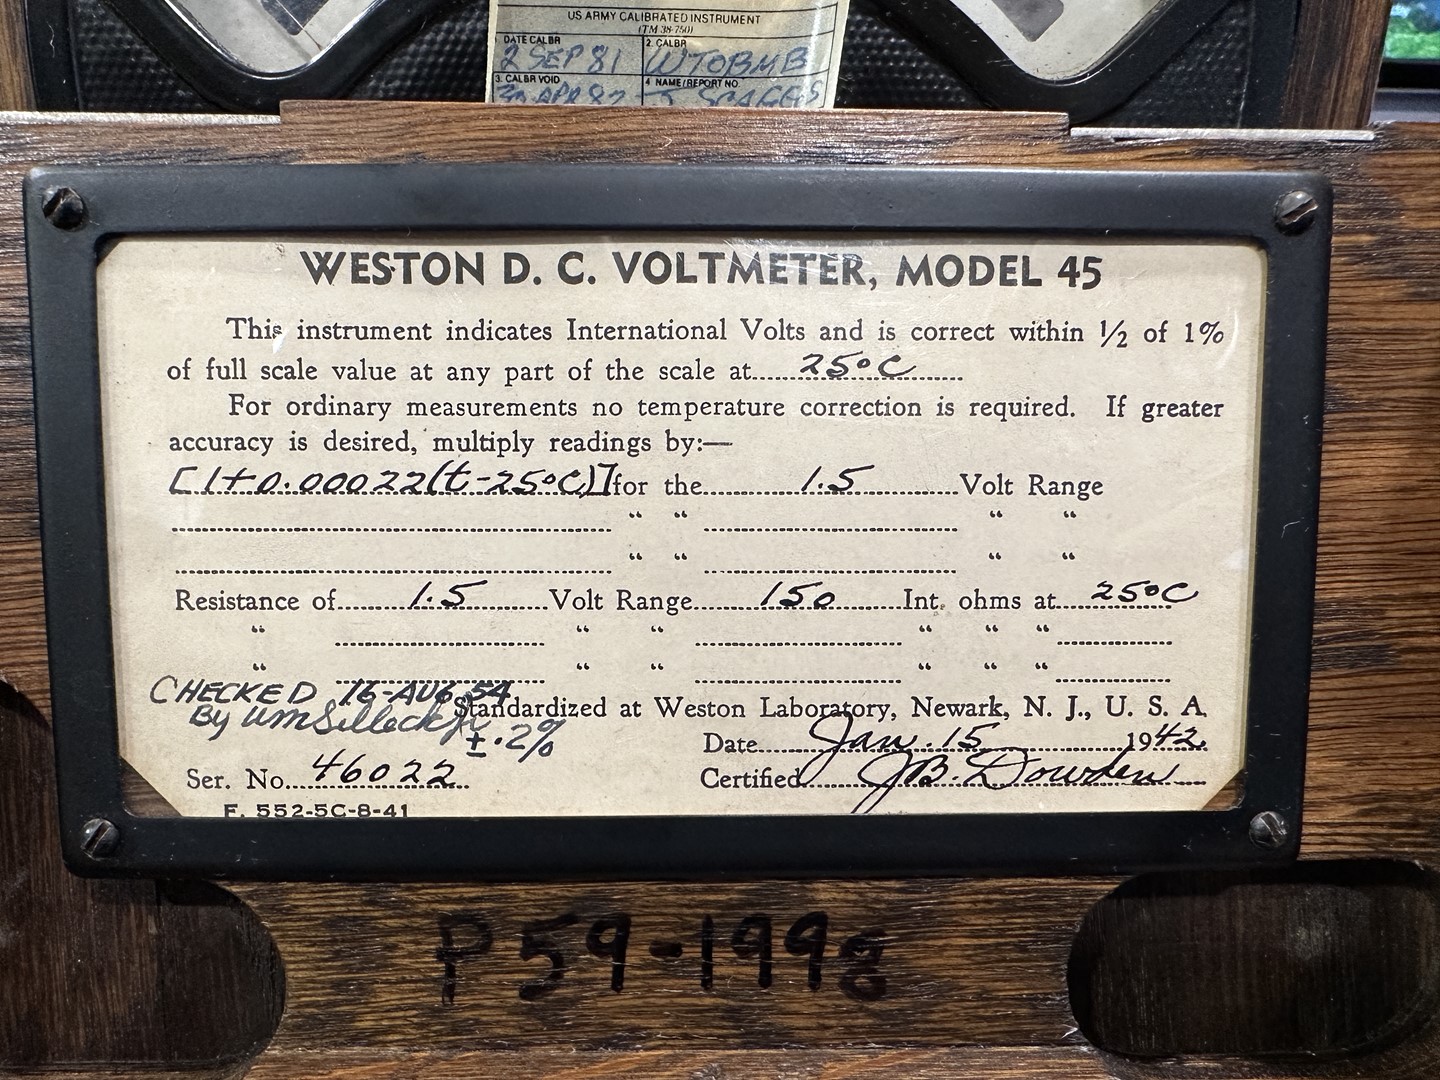 US ARMY CALIBRATED INSTRUMENT
(TM 38-750)
1. DATE CALBR 2. CALBR
2 SEP 81 WTOBMB
3. CALBR VOID 4 NAME/REPORT NO.
30 APR 82 J SCAGGS
WESTON D. C. VOLTMETER, MODEL 45
This instrument indicates International Volts and is correct within ½ of 1%
of full scale value at any part of the scale at 25°C
For ordinary measurements no temperature correction is required. If greater
accuracy is desired, multiply readings by:—
[1+0.00022(t-25°C)] for the 1.5 Volt Range
“ “ “ “
“ “ “ “
Resistance of 1.5 Volt Range 150 Int. ohms at 25°C
“ “ “ “ “ “
“ “ “ “ “ “
CHECKED 16-AUG 54
Standardized at Weston Laboratory, Newark, N. J., U. S. A.
By Wm Silleck Jr
± .2%
Date Jan. 15 1942
Ser. No. 46022
Certified JB. Dowden
F. 552-5C-8-41
P59-1998